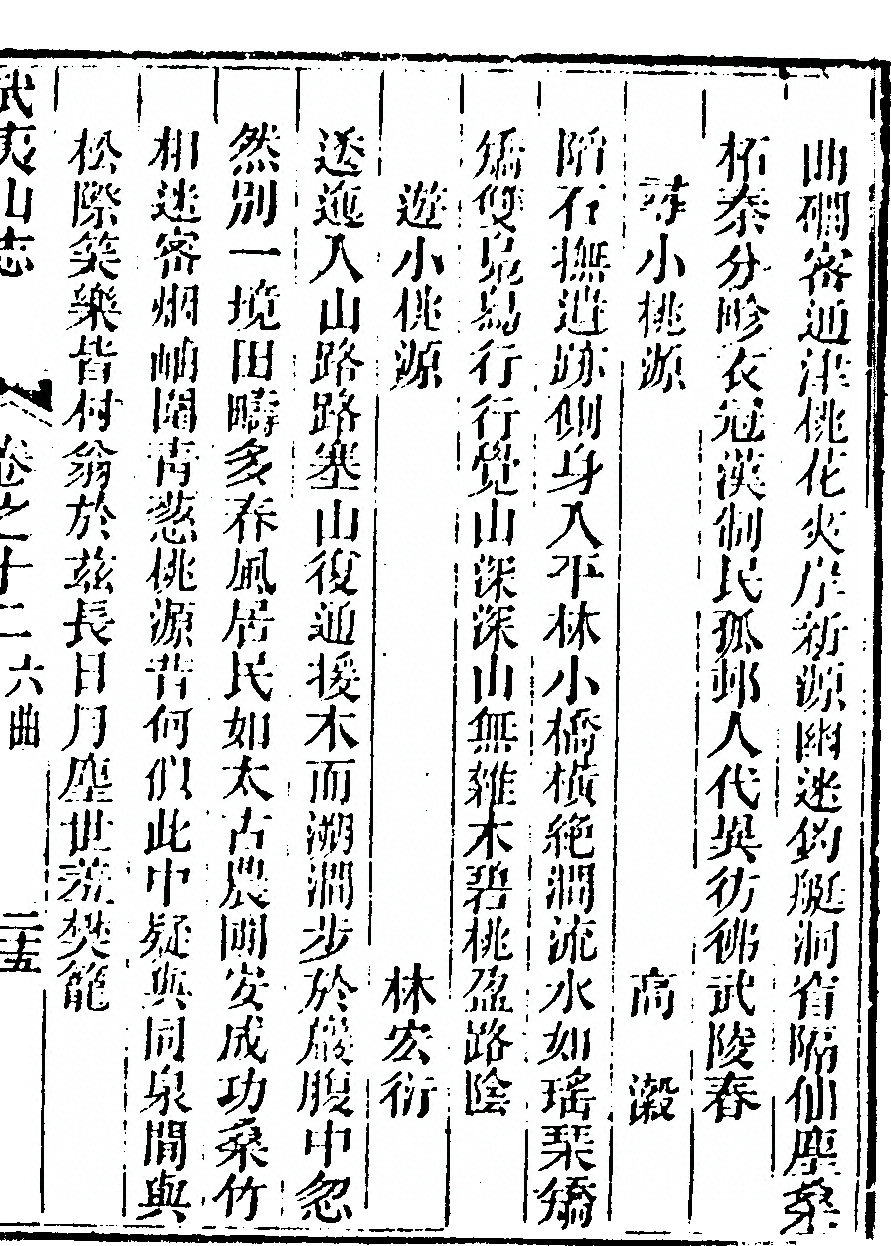 曲磵審通津桃花夾岸新源幽迷釣艇洞窅隔仙塵桑
柘秦分畛衣冠漢制民孤邨人代異彷彿武陵春
尋小桃源 高澂
陌石撫遺跡側身入平林小橋橫絶澗流水如瑤琹矯
矯雙鳧舄行行覺山深深山無雜木碧桃盈路陰
遊小桃源 林宏衍
逶迤入山路路塞山復通援木而溯澗步於巖腹中忽
然別一境田疇多春風居民如太古農圃安成功桑竹
相迷密烟岫闢青葱桃源昔何似此中疑與同泉間與
松際笑樂皆村翁於兹長日月塵世羞樊籠
武夷山志 卷之十二 六曲 二十五